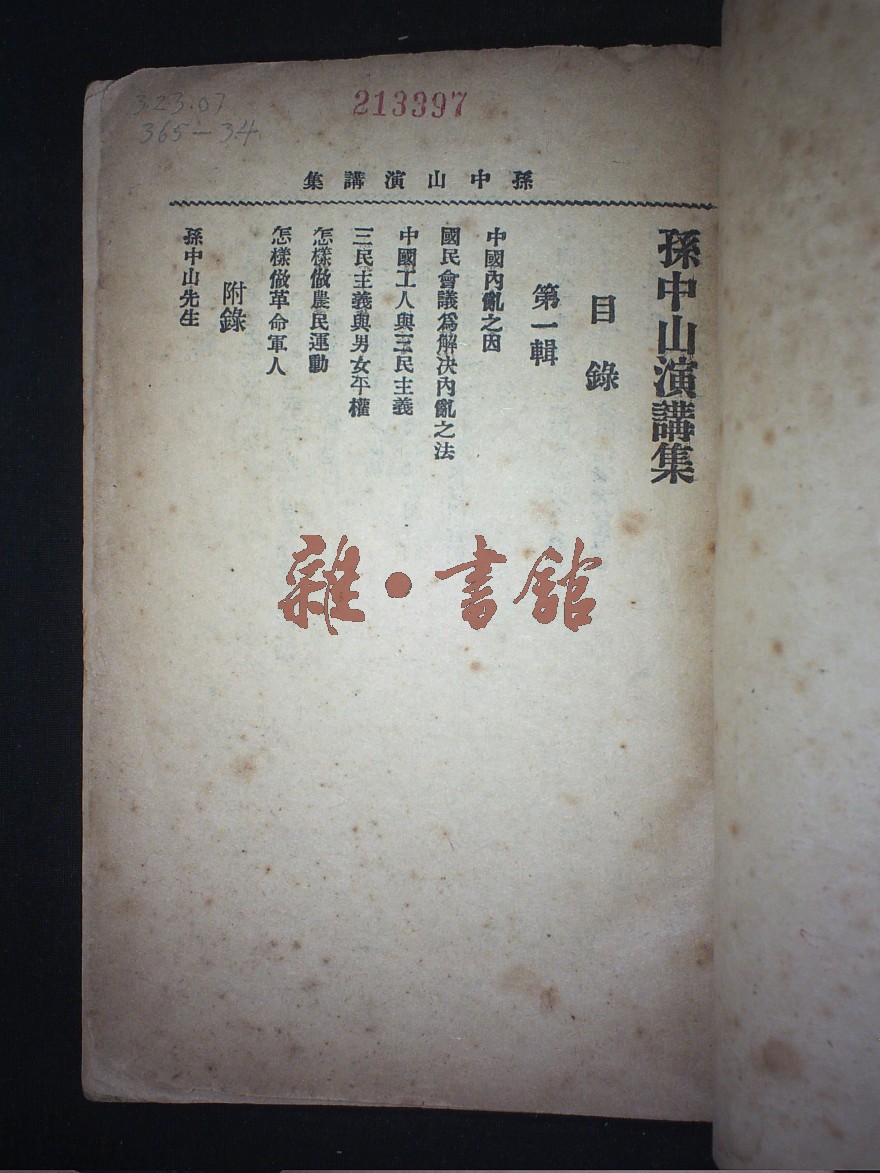 3.23.07
365-34
213397
孫中山演講集
孫中山演講集
目錄
第一輯
中國內亂之因
國民會議爲解決內亂之法
中國工人與三民主義
三民主義與男女平權
怎樣做農民運動
怎樣做革命軍人
附錄
孫中山先生
雜·書館